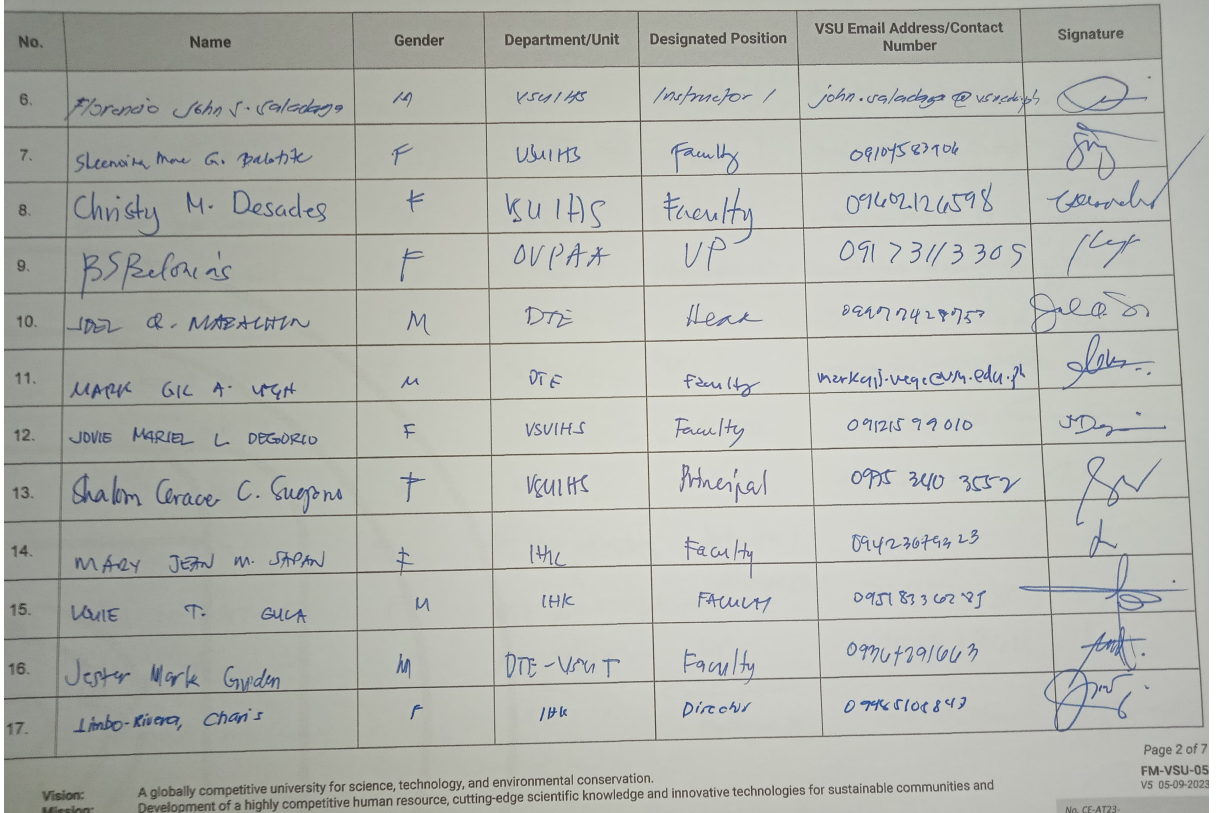 No. Name Gender Department/Unit Designated Position VSU Email Address/Contact Number Signature
6. Florencio John S. Saladaga M VSUIHS Instructor I john.saladaga@vsu.edu.ph
7. Mae G. F VSUIHS Faculty
8. Christy M. Desades F VSUIHS Faculty 09602126598
9. BSBelonias F OVPAA VP 09173113305
10. M DTE Head
11. MARK GIL A. VEGA M DTE Faculty
12. JOVIE MARIEL L DEGORIO F VSUIHS Faculty 09121599010
13. Shalom Grace C. Sugano F VSUIHS Principal 0975 340 3552
14. MARY JEAN M. SAPAN F IHK Faculty 09423679323
15. LOUIE T. GULA M IHK FACULTY
16. Jester Mark Guden M DTE-VSUT Faculty
17. Limbo-Rivera, Charis F IHK Director
Page 2 of 7
FM-VSU-05
V5 05-09-2023
Vision: A globally competitive university for science, technology, and environmental conservation.
Mission: Development of a highly competitive human resource, cutting-edge scientific knowledge and innovative technologies for sustainable communities and
No. CE-AT23-